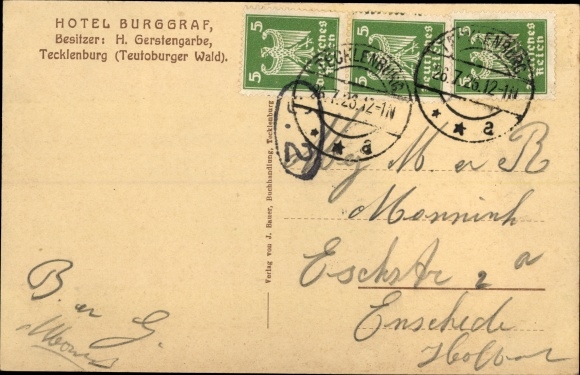 HOTEL BURGGRAF,
Besitzer: H. Gerstengarbe,
Tecklenburg (Teutoburger Wald).
5 Deutsches Reich 5
5 Deutsches Reich 5
5 Deutsches Reich 5
TECKLENBURG
26.7.26.12-1N
* * a
TECKLENBURG
26.7.26.12-1N
* * a
Verlag von J. Bauer, Buchhandlung, Tecklenburg
M. en R
Monnink
Eschstr 2a
Enschede
B. en G.